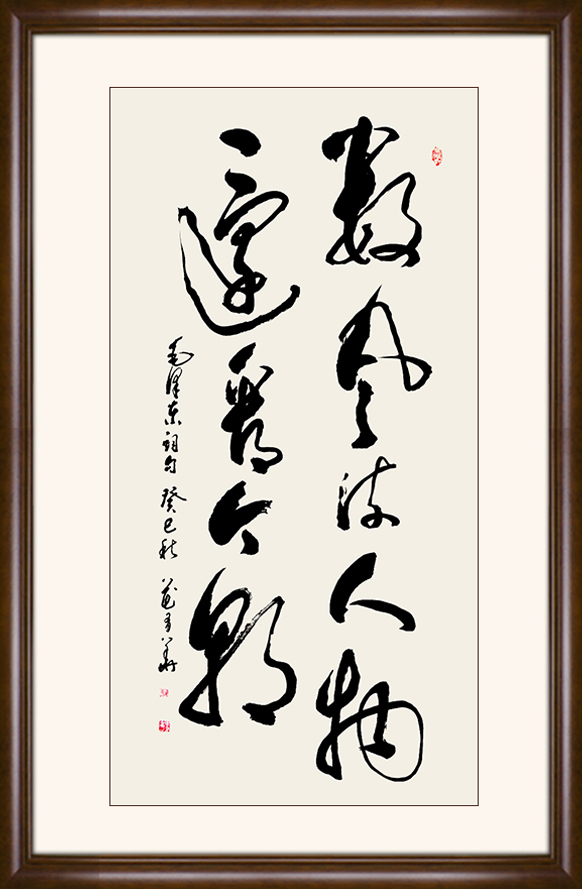 数风流人物
還看今朝
毛泽东词句 癸巳秋